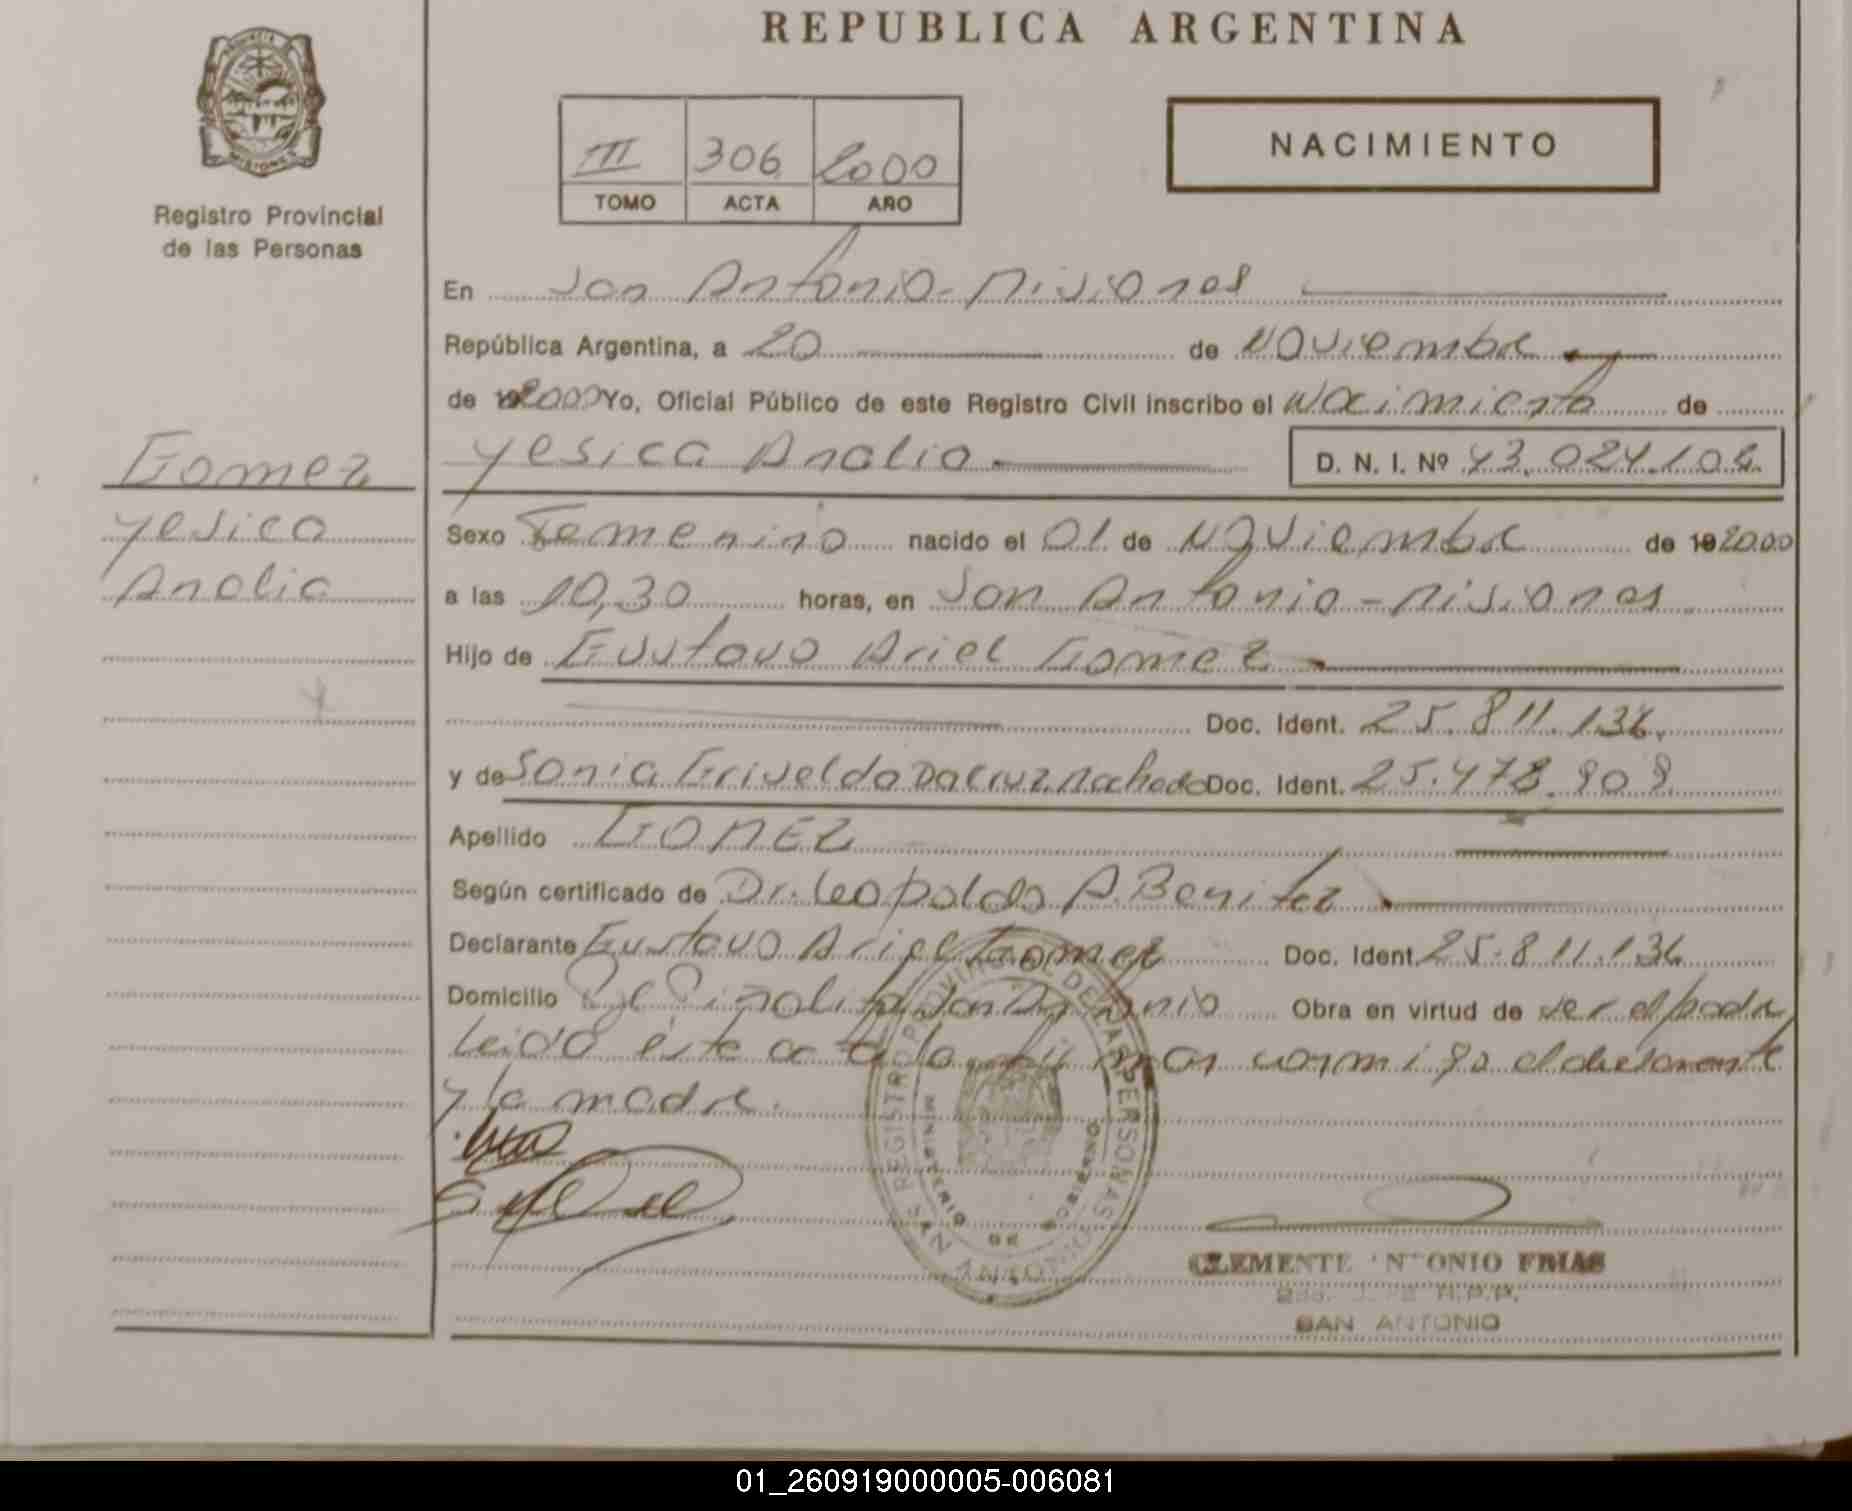 REPUBLICA ARGENTINA
PROVINCIA
MISIONES
Registro Provincial
de las Personas
III 306 2000
TOMO ACTA AÑO
NACIMIENTO
En San Antonio - Misiones
República Argentina, a 20 de Noviembre
de 192000 Yo, Oficial Público de este Registro Civil inscribo el Nacimiento de
Gomez
Yesica
Analia
Yesica Analia D. N. I. Nº 43.024.104
Sexo Femenino nacido el 01 de Noviembre de 192000
a las 10,30 horas, en San Antonio - Misiones
Hijo de Gustavo Ariel Gomez
Doc. Ident. 25.811.136.
y de Sonia Griselda Da Cruz Machado Doc. Ident. 25.478.909
Apellido GOMEZ
Según certificado de Dr. Leopoldo A. Benitez
Declarante Gustavo Ariel Gomez Doc. Ident. 25.811.136
Domicilio San Antonio Obra en virtud de ser el padre
Leido éste acta la firman conmigo el declarante
y la madre.
REGISTRO PROVINCIAL DE LAS PERSONAS
MINISTERIO DE GOBIERNO
SAN ANTONIO
CLEMENTE ANTONIO FRIAS
R.P.P.
SAN ANTONIO
01_260919000005-006081